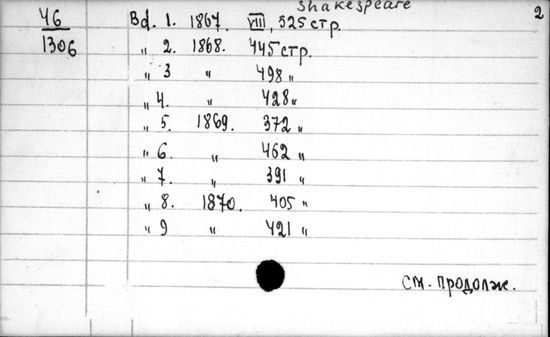 Shakespeare
2
46
1306
Bd. 1. 1867. VIII, 525 стр.
" 2. 1868. 445 стр.
" 3 " 498 "
" 4. " 428 "
" 5. 1869. 372 "
" 6. " 462 "
" 7. " 391 "
" 8. 1870. 405 "
" 9 " 421 "
см. продолж.